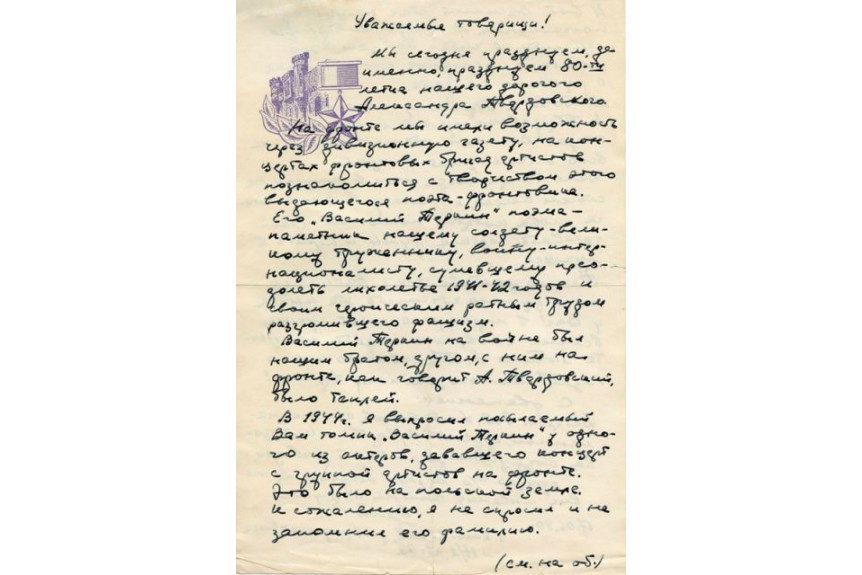 Уважаемые товарищи!
Мы сегодня празднуем, да
именно, празднуем 80-ти
летие нашего дорогого
Александра Твардовского
На фронте мы имели возможность
через дивизионную газету, на кон-
цертах фронтовых бригад артистов
познакомиться с творчеством этого
выдающегося поэта-фронтовика.
Его „Василий Теркин" поэма-
памятник нашему солдату-вели-
кому труженнику, воину-интер-
националисту, сумевшему прео-
долеть лихолетье 1941-42 годов и
своим героическим ратным трудом
разгромившего фашизм.
Василий Теркин на войне был
нашим братом, другом, с ним на
фронте, как говорит А. Твардовский,
было теплей.
В 1944г. я выпросил посылаемый
Вам томик „Василий Теркин" у одно-
го из актеров, дававшего концерт
с группой артистов на фронте.
Это было на польской земле.
К сожалению, я не спросил и не
запомнил его фамилию.
(см. на об.)